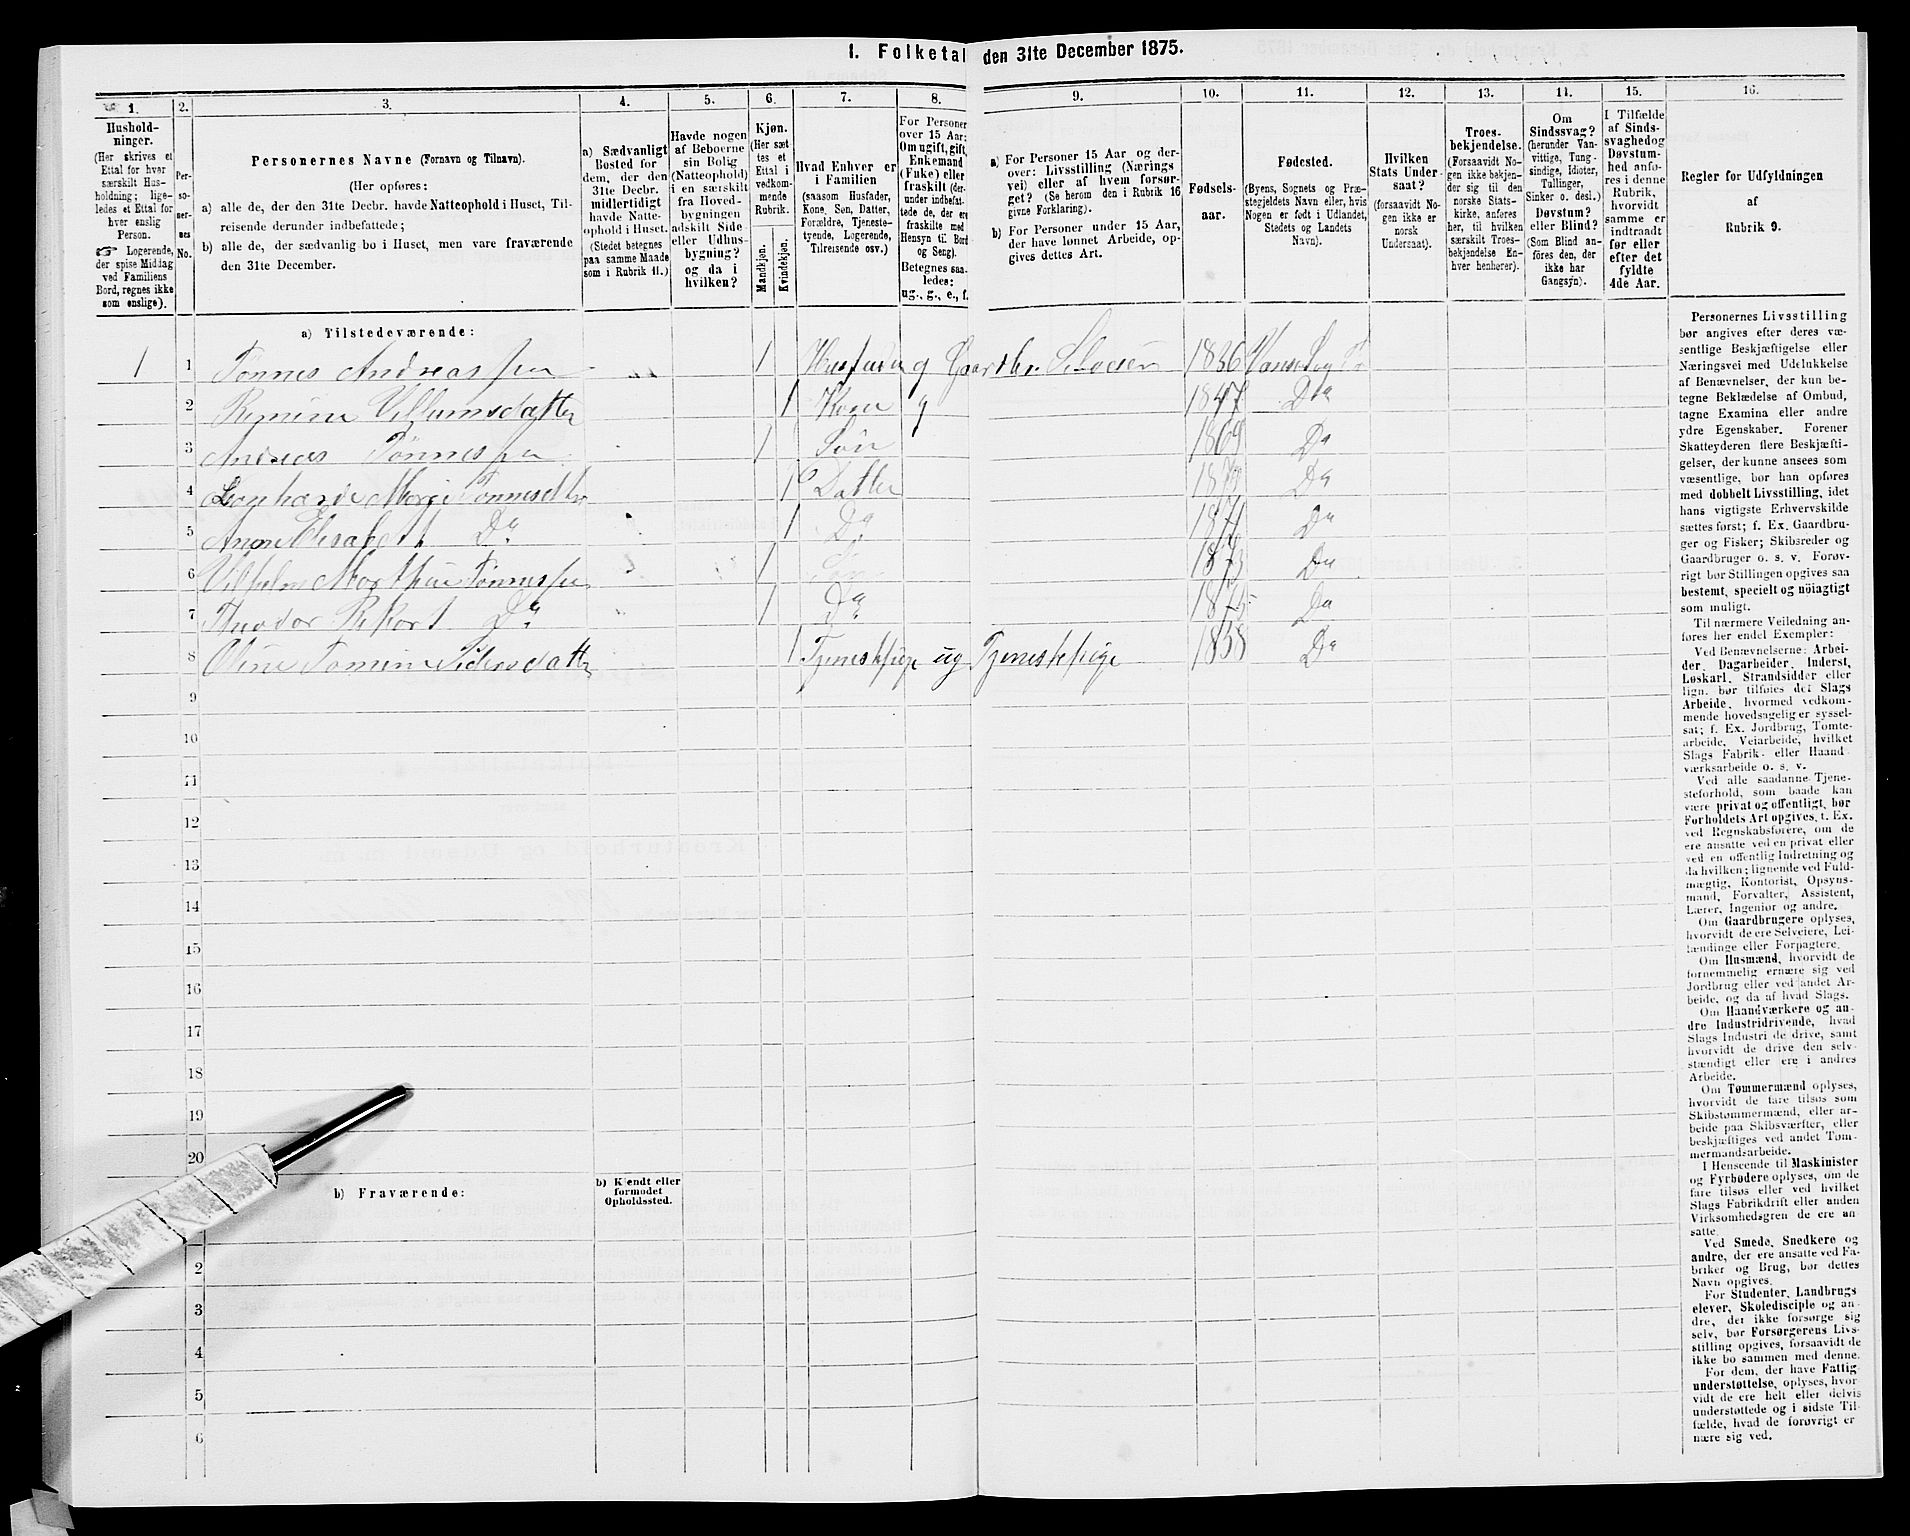 1. Folketal den 31te December 1875.
1.
Hushold-
ninger.
(Her skrives et
Ettal for hver
særskilt Hus-
holdning; lige-
ledes et Ettal for
hver enslig
Person.
☞ Logerende,
der spise Middag
ved Familiens
Bord, regnes ikke
som enslige).
2.
Per-
so-
ner-
nes
No.
3.
Personernes Navne (Fornavn og Tilnavn).
(Her opføres:
a) alle de, der den 31te Decbr. havde Natteophold i Huset, Til-
reisende derunder indbefattede;
b) alle de, der sædvanlig bo i Huset, men vare fraværende
den 31te December.
4.
a) Sædvanligt
Bosted for
dem, der den
31te Decbr.
midlertidigt
havde Natte-
ophold i Huset.
(Stedet betegnes
paa samme Maade
som i Rubrik 11.)
5.
Havde nogen
af Beboerne
sin Bolig
(Natteophold)
i en særskilt
fra Hoved-
bygningen
adskilt Side-
eller Udhus-
bygning?
og da i
hvilken?
6.
Kjøn.
(Her sæt
tes et
Ettal i
vedkom-
mende
Rubrik.
Mandkjøn.
Kvindekjøn.
7.
Hvad Enhver er
i Familien
(saasom Husfader,
Kone, Søn, Datter,
Forældre, Tjeneste-
tyende, Logerende,
Tilreisende osv.)
8.
For Personer
over 15 Aar:
Om ugift, gift,
Enkemand
(Fuke) eller
fraskilt (der-
under indbefat-
tede de, der ere
fraskilte med
Hensyn til Bord
og Seng).
Betegnes saa-
ledes:
ug., g., e., f.
9.
a) For Personer 15 Aar og der-
over: Livsstilling (Nærings
vei) eller af hvem forsør-
get? (Se herom den i Rubrik 16
givne Forklaring).
b) For Personer under 15 Aar,
der have lønnet Arbeide, op-
gives dettes Art.
10.
Fødsels-
aar.
11.
Fødested.
(Byens, Sognets og Præ-
stegjeldets Navn eller, hvis
Nogen er født i Udlandet,
Stedets og Landets
Navn).
12.
Hvilken
Stats Under-
saat?
(forsaavidt No-
gen ikke er
norsk
Undersaat).
13.
Troes-
bekjendelse.
(Forsaavidt No-
gen ikke bekjen-
der sig til den
norske Stats-
kirke, anføres
her, til hvilken
særskilt Troes-
bekjendelse En-
hver henhører).
14.
Om
Sindssvag?
(herunder Van-
vittige, Tung-
sindige, Idioter,
Tullinger,
Sinker o. desl.)
Døvstum?
eller Blind?
(Som Blind an-
føres den, der
ikke har
Gangsyn).
15.
I Tilfælde
af Sinds-
svaghed og
Døvstum-
hed anfø-
res i denne
Rubrik,
hvorvidt
samme er
indtraadt
før eller
efter det
fyldte
4de Aar.
16.
Regler for Udfyldningen
af
Rubrik 9.
a) Tilstedeværende:
1 1 Tønnes Andreassen 1 Husfader g Gaardbr. Selveier 1836
2 Villumsdatter 1 Kone g 1847 Do
3 Andreas Tønnessen 1 Søn 1869 Do
4 Tønnesdtr 1 Datter Do
5 Elisabet Do 1 Do 1871 Do
6 Tønnessen 1 1873 Do
7 Do 1 Do 1875 Do
8 Oline 1 Tjenestepige ug Tjenestepige 1858 Do
9
10
11
12
13
14
15
16
17
18
19
20
b) Fraværende:
b) Kjendt eller
formodet
Opholdssted.
2
3
4
5
6
Personernes Livsstilling
bør angives efter deres væ-
sentlige Beskjæftigelse eller
Næringsvei med Udelukkelse
af Benævnelser, der kun be-
tegne Beklædelse af Ombud,
tagne Examina eller andre
ydre Egenskaber. Forener
Skatteyderen flere Beskjæfti-
gelser, der kunne ansees som
væsentlige, bør han opføres
med dobbelt Livsstilling, idet
hans vigtigste Erhvervskilde
sættes først; f. Ex. Gaardbru-
ger og Fisker; Skibsreder og
Gaardbruger o. s. v. Forøv-
rigt bør Stillingen opgives saa
bestemt, specielt og nöiagtigt
som muligt.
Til nærmere Veiledning an-
føres her endel Exempler:
Ved Benævnelserne: Arbei-
der, Dagarbeider, Inderst,
Løskarl, Strandsidder eller
lign. bør tilføies det Slags
Arbeide, hvormed vedkom-
mende hovedsagelig er syssel-
sat; f. Ex. Jordbrug, Tomte-
arbeide, Veiarbeide, hvilket
Slags Fabrik- eller Haand-
værksarbeide o. s. v.
Ved alle saadanne Tjene-
steforhold, som baade kan
være privat og offentligt, bør
Forholdets Art opgives, t. Ex.
ved Regnskabsførere, om de
ere ansatte ved en privat eller
ved en offentlig Indretning og
da hvilken; lignende ved Fuld-
mægtig, Kontorist, Opsyns-
mand, Forvalter, Assistent,
Lærer, Ingeniør og andre.
Om Gaardbrugere oplyses,
hvorvidt de ere Selveiere, Lei-
lændinge eller Forpagtere.
Om Husmænd, hvorvidt de
fornemmelig ernære sig ved
Jordbrug eller ved andet Ar-
beide, og da af hvad Slags.
Om Haandværkere og an-
dre Industridrivende, hvad
Slags Industri de drive, samt
hvorvidt de drive den selv-
stændigt eller ere i andres
Arbeide.
Om Tømmermænd oplyses,
hvorvidt de fare tilsøs som
Skibstømmermænd, eller ar-
beide paa Skibsværfter, eller
beskjæftiges ved andet Tøm-
mermandsarbeide.
I Henseende til Maskinister
og Fyrbødere oplyses, om de
fare tilsøs eller ved hvilket
Slags Fabrikdrift eller anden
Virksomhedsgren de ere an-
satte.
Ved Smede, Snedkere og
andre, der ere ansatte ved Fa-
briker og Brug, bør dettes
Navn opgives.
For Studenter, Landbrugs-
elever, Skoledisciple og an-
dre, der ikke forsørge sig
selv, bør Forsørgerens Livs-
stilling opgives, forsaavidt de
ikke bo sammen med denne.
For dem, der have Fattig-
understøttelse, oplyses, hvor-
vidt de ere helt eller delvis
understøttede og i sidste Til-
fælde, hvad de forøvrigt er-
nære sig ved.